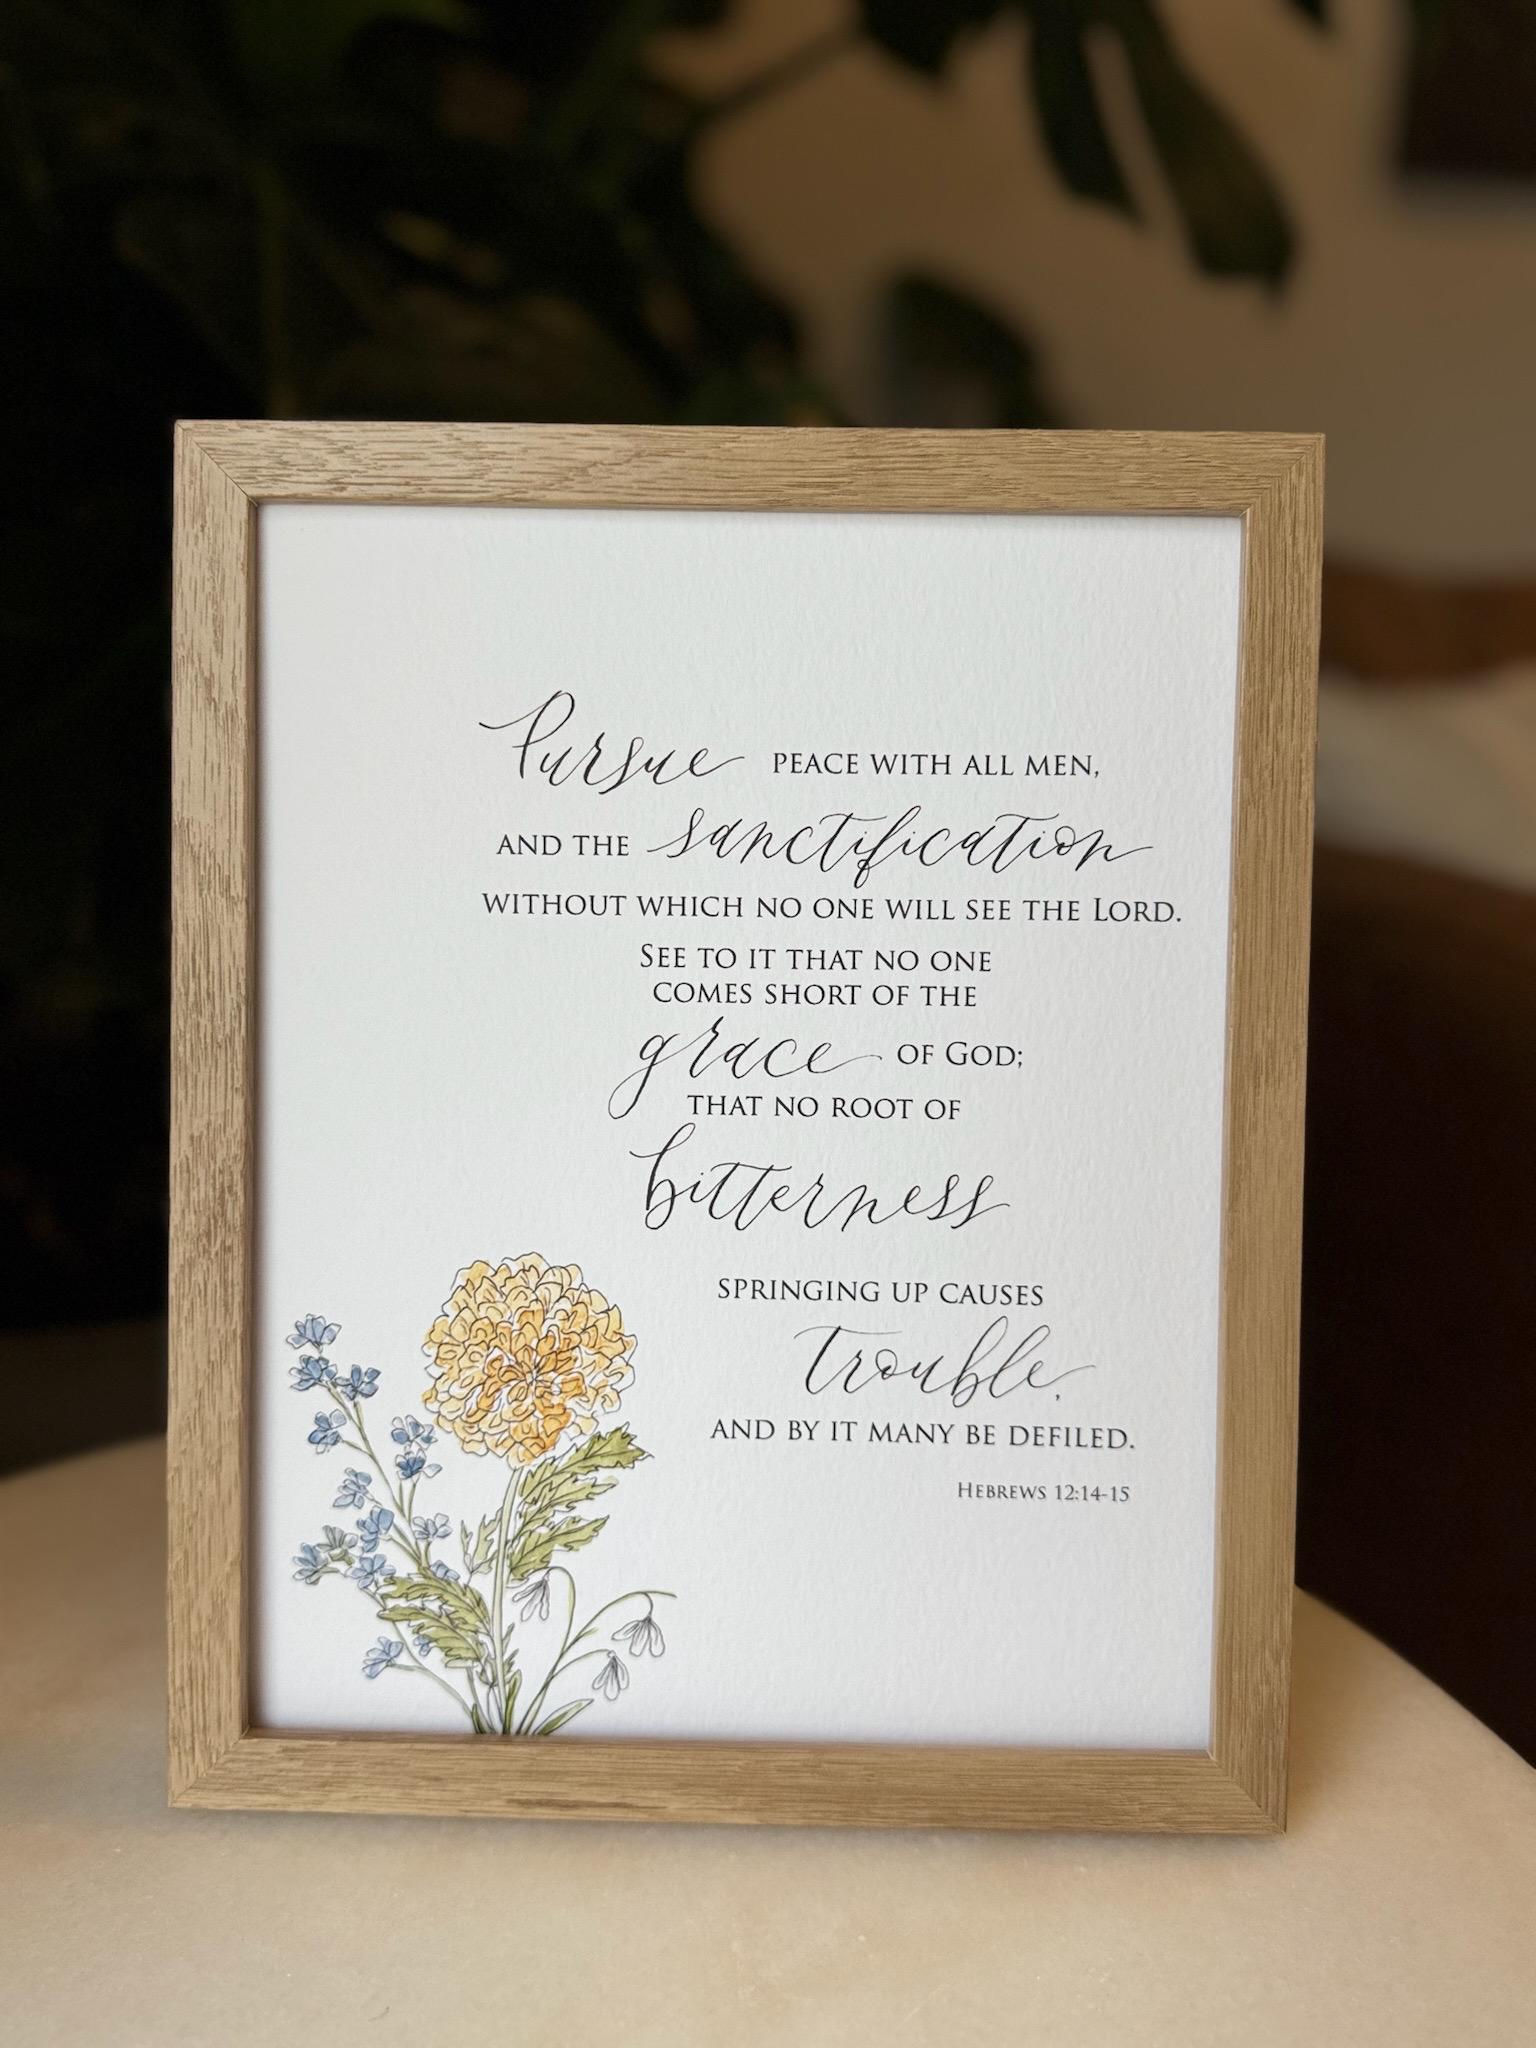 Pursue PEACE WITH ALL MEN,
AND THE sanctification
WITHOUT WHICH NO ONE WILL SEE THE LORD.
SEE TO IT THAT NO ONE
COMES SHORT OF THE
grace OF GOD;
THAT NO ROOT OF
bitterness
SPRINGING UP CAUSES
trouble,
AND BY IT MANY BE DEFILED.
HEBREWS 12:14-15